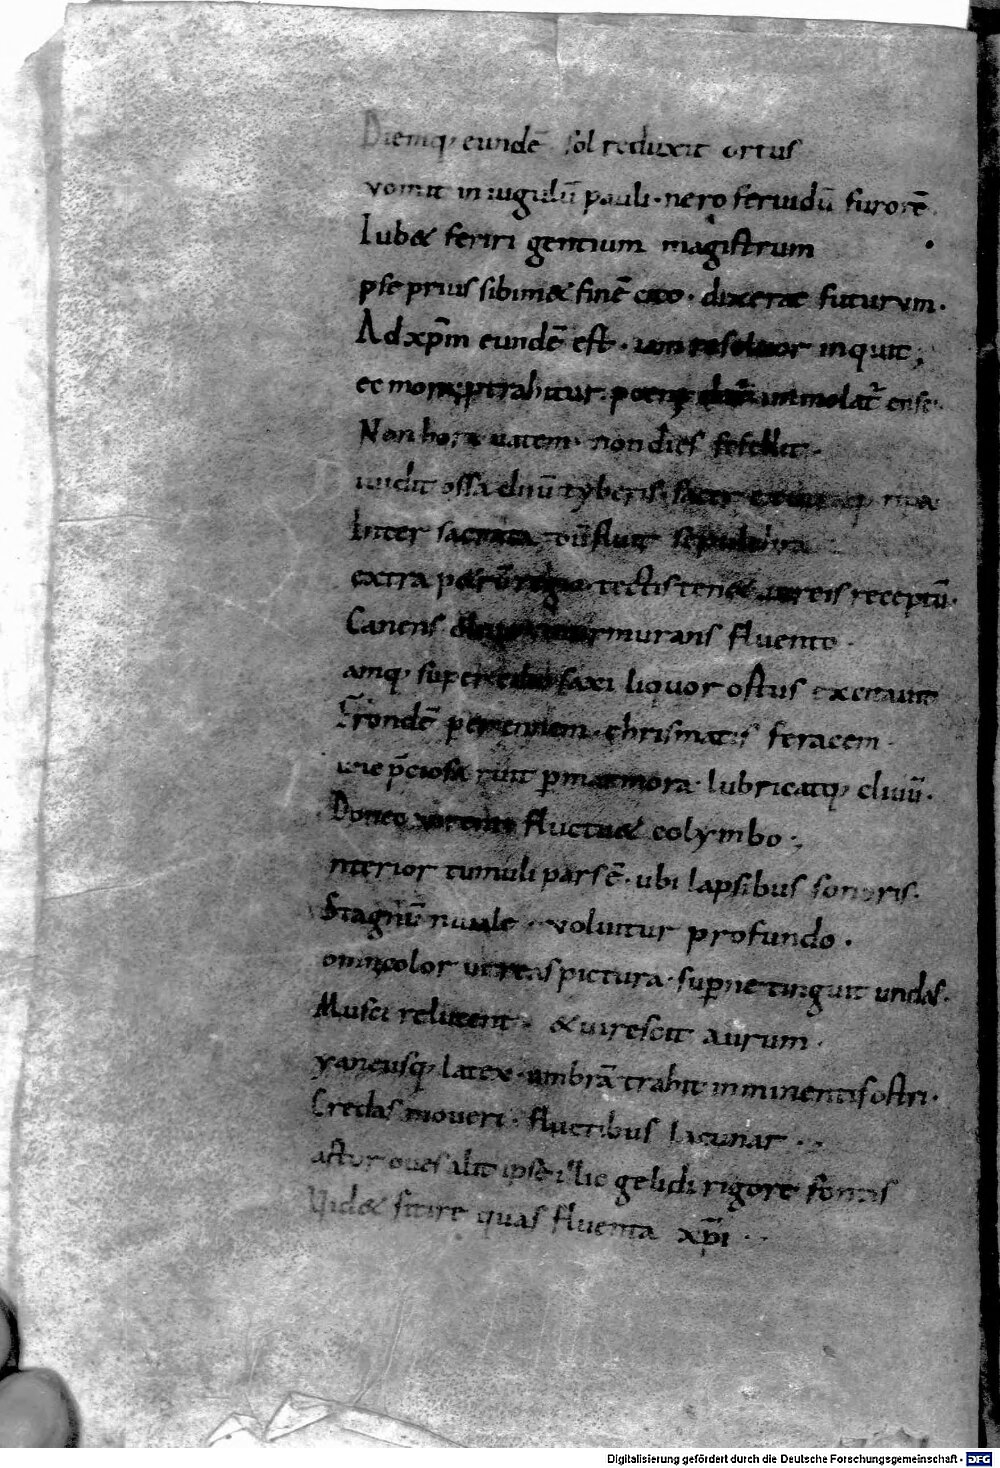 Diemq; eundẽ sol reduxit ortus
vomit in iugulũ pauli · nero feruidũ furorẽ
Iub& feriri gentium magistrum ·
pse prius sibim& finẽ cito · dixerat futurum ·
Ad xp̄m eundẽ est · iam resoluor inquit;
ec mora; ptrahitur · poenę datur̃ immolat̃ ense ·
Non hora uatem · non dies fefellit ·
uidit ossa duũ tyberis · sacer q; ripa
Inter sacrata dũ fluit sepulchra
extra parũ regio tectis ten& aureis receptũ ·
Canens murmurans fluento ·
amq; supercilio saxi liquor ostus excitauit
Frondẽ perennem · chrismatis feracem ·
uie p̃ciosa ruit p marmora · lubricatq; cliuũ ·
Donec uirenti fluctu& colymbo ·
nterior tumuli pars ẽ · ubi lapsibus sonoris ·
Stagnũ niuale · voluitur profundo ·
omnicolor uitreas pictura · supne tinguit undas ·
Musci relucent · & uirescit aurum ·
yaneusq; latex · umbrã trahit inminentis ostri ·
Credas moueri · fluctibus lacunar ·
astor oues alit ipse illic gelidi rigore fontis
Uid& sitire quas fluenta xp̄i ·
Digitalisierung gefördert durch die Deutsche Forschungsgemeinschaft · DFG